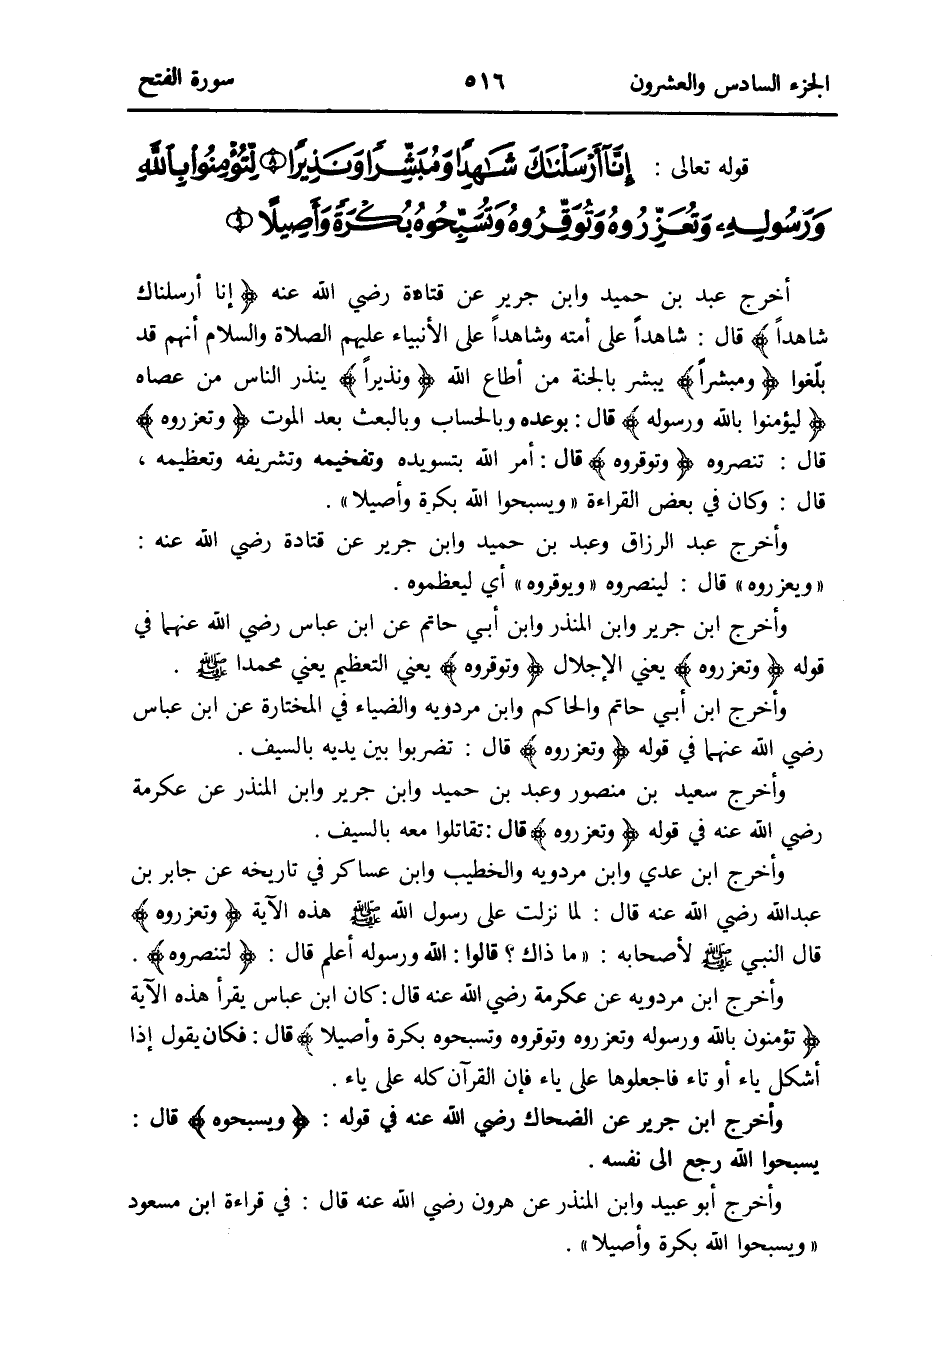 الجزء السادس والعشرون ٥١٦ سورة الفتح
قوله تعالى : إِنَّآ أَرْسَلْنَٰكَ شَٰهِدًا وَمُبَشِّرًا وَنَذِيرًا ۝٨ لِّتُؤْمِنُوا۟ بِٱللَّهِ
وَرَسُولِهِۦ وَتُعَزِّرُوهُ وَتُوَقِّرُوهُ وَتُسَبِّحُوهُ بُكْرَةً وَأَصِيلًا ۝٩
أخرج عبد بن حميد وابن جرير عن قتادة رضي الله عنه ﴿ إنا أرسلناك
شاهداً ﴾ قال : شاهداً على أمته وشاهداً على الأنبياء عليهم الصلاة والسلام أنهم قد
بلّغوا ﴿ ومبشراً ﴾ يبشر بالجنة من أطاع الله ﴿ ونذيراً ﴾ ينذر الناس من عصاه
﴿ ليؤمنوا بالله ورسوله ﴾ قال : بوعده وبالحساب وبالبعث بعد الموت ﴿ وتعزروه ﴾
قال : تنصروه ﴿ وتوقروه ﴾ قال : أمر الله بتسويده وتفخيمه وتشريفه وتعظيمه ،
قال : وكان في بعض القراءة « ويسبحوا الله بكرة وأصيلا » .
وأخرج عبد الرزاق وعبد بن حميد وابن جرير عن قتادة رضي الله عنه :
« ويعزروه » قال : لينصروه « ويوقروه » أي ليعظموه .
وأخرج ابن جرير وابن المنذر وابن أبي حاتم عن ابن عباس رضي الله عنهما في
قوله ﴿ وتعزروه ﴾ يعني الإجلال ﴿ وتوقروه ﴾ يعني التعظيم يعني محمدا ﷺ .
وأخرج ابن أبي حاتم والحاكم وابن مردويه والضياء في المختارة عن ابن عباس
رضي الله عنهما في قوله ﴿ وتعزروه ﴾ قال : تضربوا بين يديه بالسيف .
وأخرج سعيد بن منصور وعبد بن حميد وابن جرير وابن المنذر عن عكرمة
رضي الله عنه في قوله ﴿ وتعزروه ﴾ قال : تقاتلوا معه بالسيف .
وأخرج ابن عدي وابن مردويه والخطيب وابن عساكر في تاريخه عن جابر بن
عبدالله رضي الله عنه قال : لما نزلت على رسول الله ﷺ هذه الآية ﴿ وتعزروه ﴾
قال النبي ﷺ لأصحابه : « ما ذاك ؟ قالوا : الله ورسوله أعلم قال : ﴿ لتنصروه ﴾ .
وأخرج ابن مردويه عن عكرمة رضي الله عنه قال : كان ابن عباس يقرأ هذه الآية
﴿ تؤمنون بالله ورسوله وتعزروه وتوقروه وتسبحوه بكرة وأصيلا ﴾ قال : فكان يقول إذا
أشكل ياء أو تاء فاجعلوها على ياء فإن القرآن كله على ياء .
وأخرج ابن جرير عن الضحاك رضي الله عنه في قوله : ﴿ ويسبحوه ﴾ قال :
يسبحوا الله رجع الى نفسه .
وأخرج أبو عبيد وابن المنذر عن هرون رضي الله عنه قال : في قراءة ابن مسعود
« ويسبحوا الله بكرة وأصيلا » .